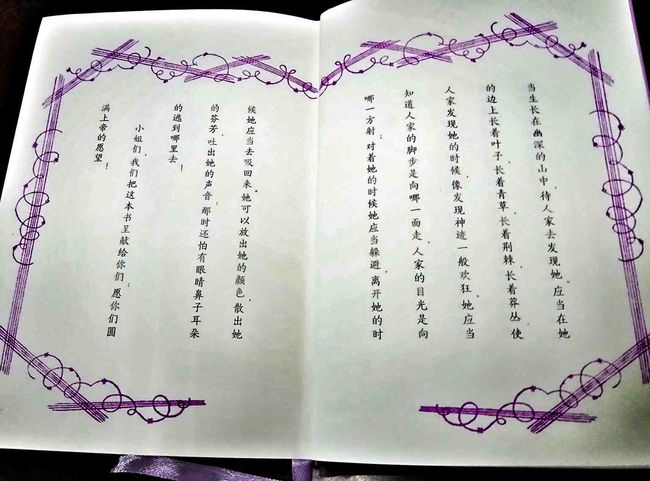 当生长在幽深的山中，待人家去发现她。应当在她
的边上长着叶子，长着青草，长着荆棘，长着莽丛，使
人家发现她的时候，像发现神迹一般欢狂。她应当
知道人家的脚步是向哪一面走，人家的目光是向
哪一方射；对着她的时候她应当躲避，离开她的时
候她应当去吸回来。她可以放出她的颜色，散出她
的芬芳，吐出她的声音；那时还怕有眼睛鼻子耳朵
的逃到哪里去！
小姐们，我们把这本书呈献给你们；愿你们圆
满上帝的愿望！